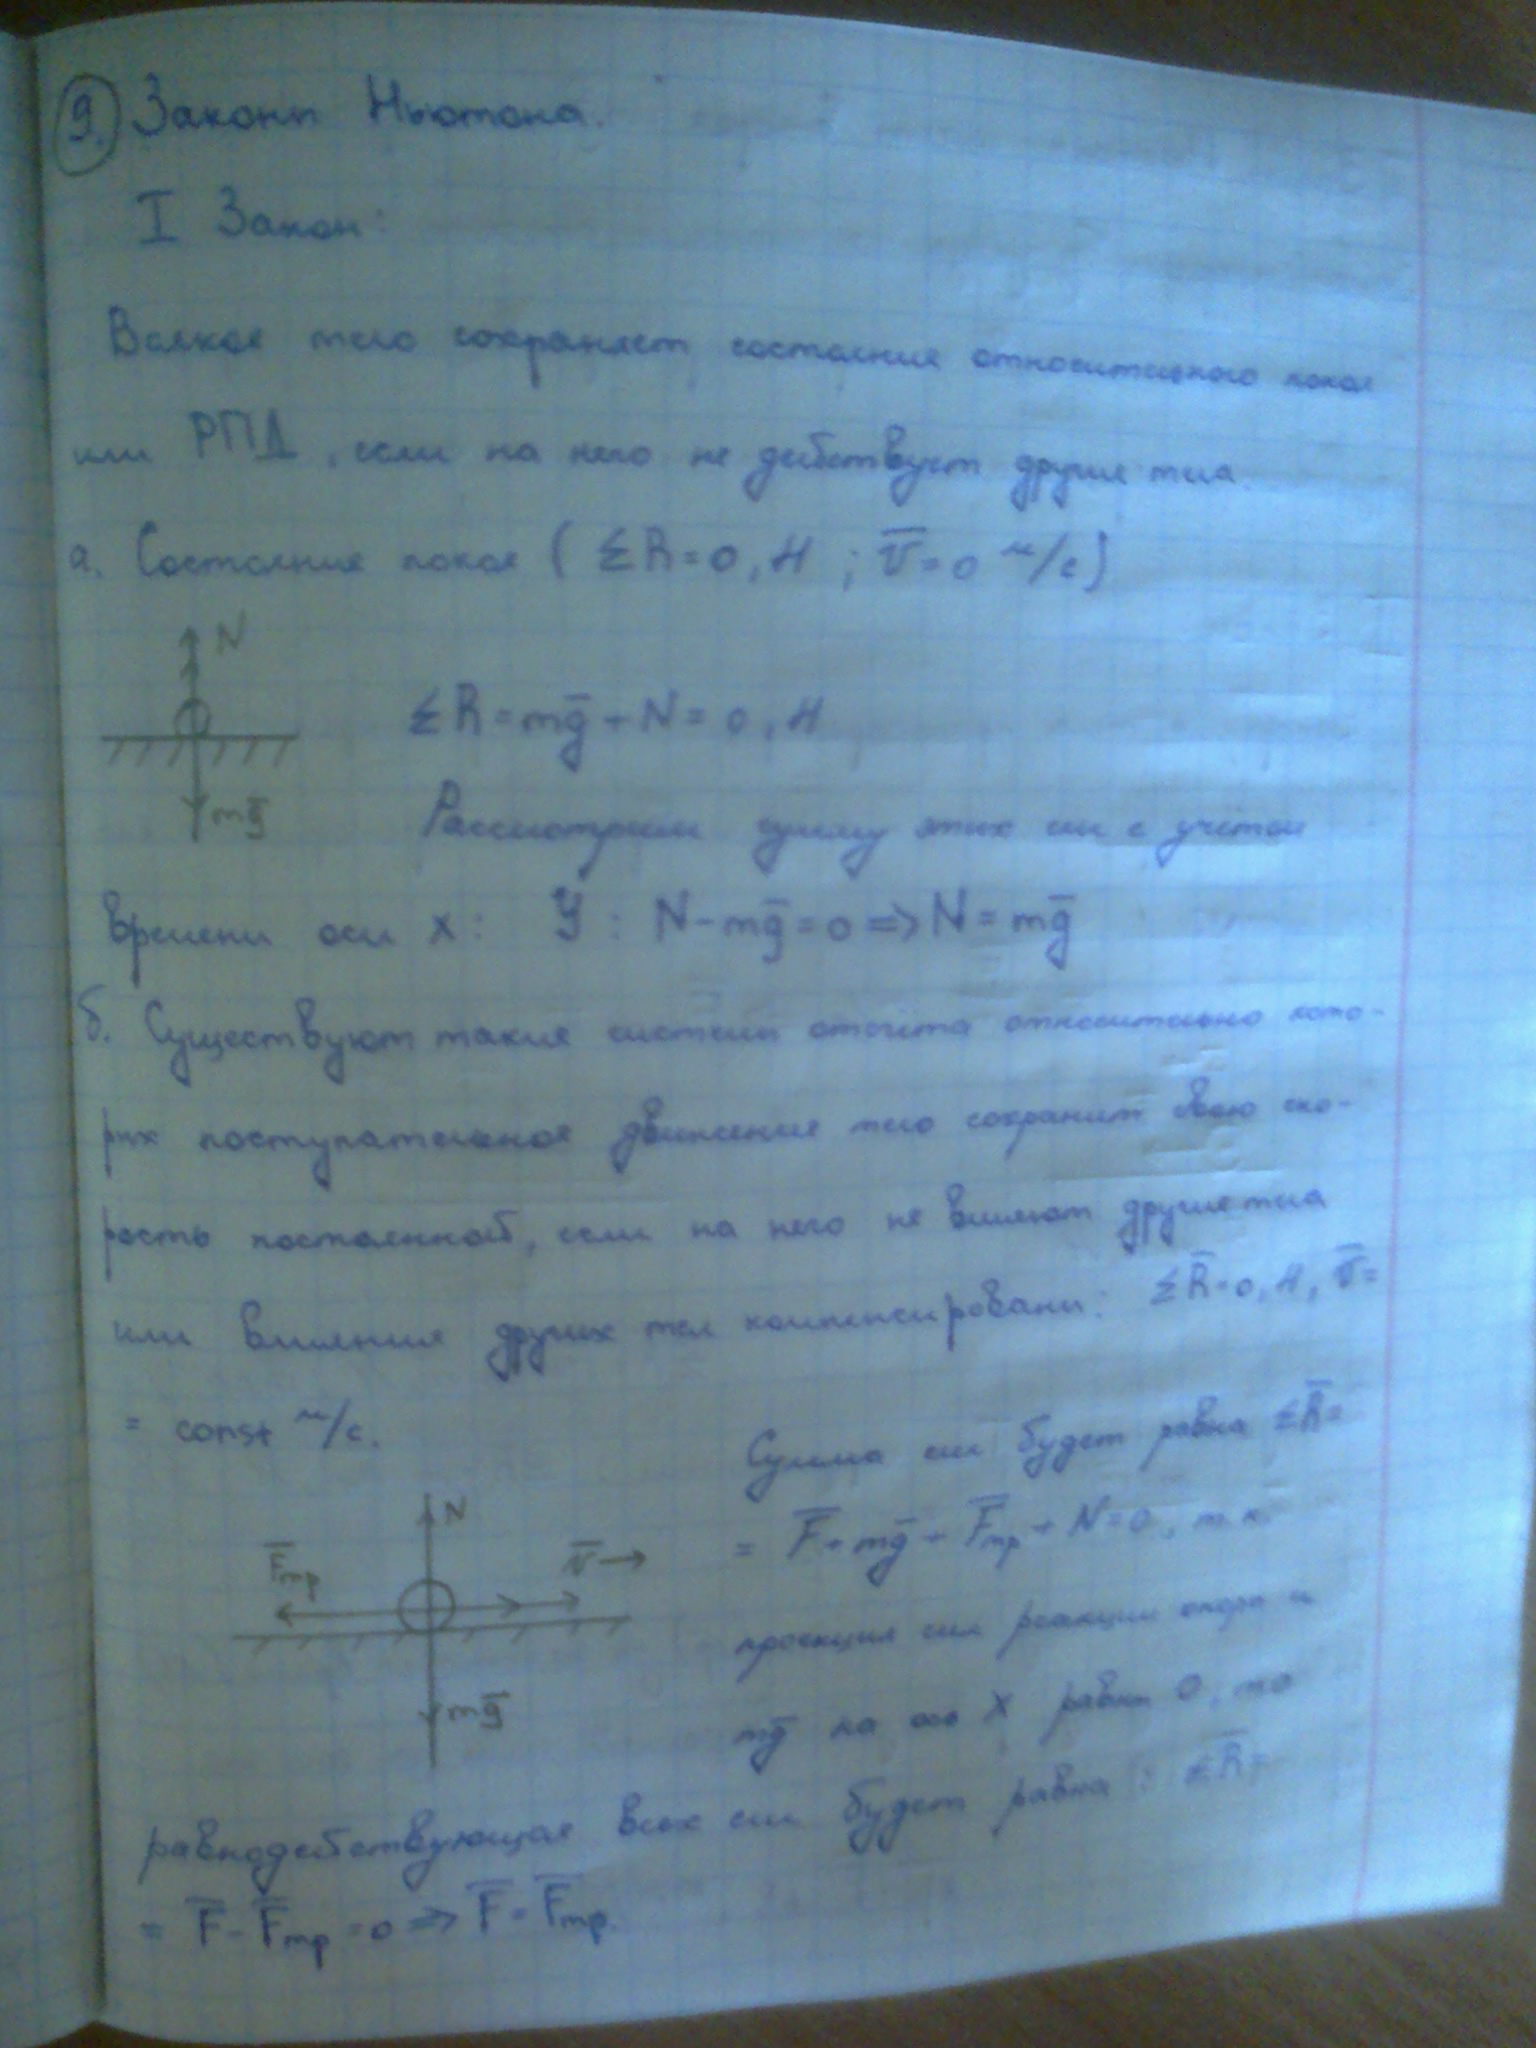 9. Законы Ньютона.
I Закон:
Всякое тело сохраняет состояние относительного покоя
или РПД, если на него не действует другие тела.
а. Состояние покоя (ΣR̄=0, Н ; v̄=0 м/с)
N
ΣR̄=mḡ+N=0, Н
mḡ
Рассмотрим сумму этих сил с учётом
времени оси X: У: N-mḡ=0 => N=mḡ
б. Существуют такие системы отсчёта относительно кото-
рых поступательное движение тело сохранит свою ско-
рость постоянной, если на него не влияют другие тела
или влияния других тел компенсированы: ΣR̄=0, Н, v̄=
= const м/с.
Сумма сил будет равна ΣR̄=
N
= F̄+mḡ+F̄тр+N=0, т.к.
F̄тр
v̄
проекция сил реакции опоры и
mḡ
mḡ на ось X равны 0, то
равнодействующая всех сил будет равна: ΣR̄=
= F̄-F̄тр=0 => F̄=F̄тр.